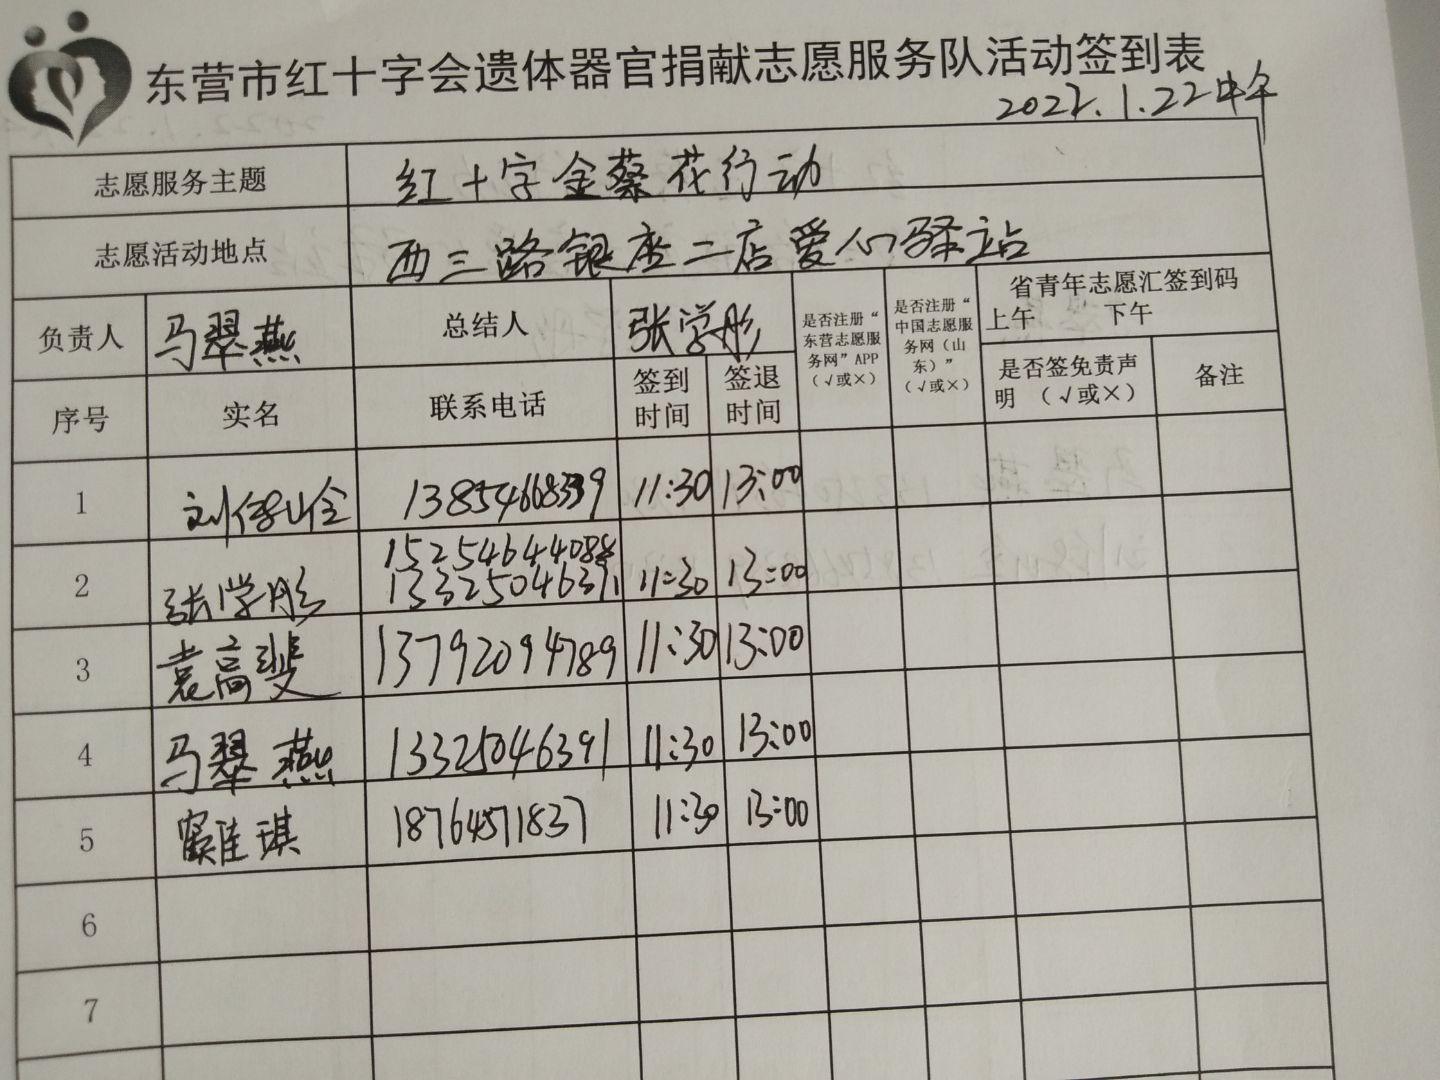 东营市红十字会遗体器官捐献志愿服务队活动签到表
2022.1.22中午
志愿服务主题 红十字金葵花行动
志愿活动地点 西三路银座二店爱心驿站
负责人 马翠燕 总结人 张学彤 是否注册“东营志愿服务网”APP（√或×） 是否注册“中国志愿服务网（山东）”（√或×） 省青年志愿汇签到码
上午 下午
序号 实名 联系电话 签到时间 签退时间 是否签免责声明（√或×） 备注
1 刘 13854668339 11:30 13:00
2 张学彤 15254644088 13325046391 11:30 13:00
3 袁高斐 13792094789 11:30 13:00
4 马翠燕 13325046391 11:30 13:00
5 窦佳琪 18764571837 11:30 13:00
6
7